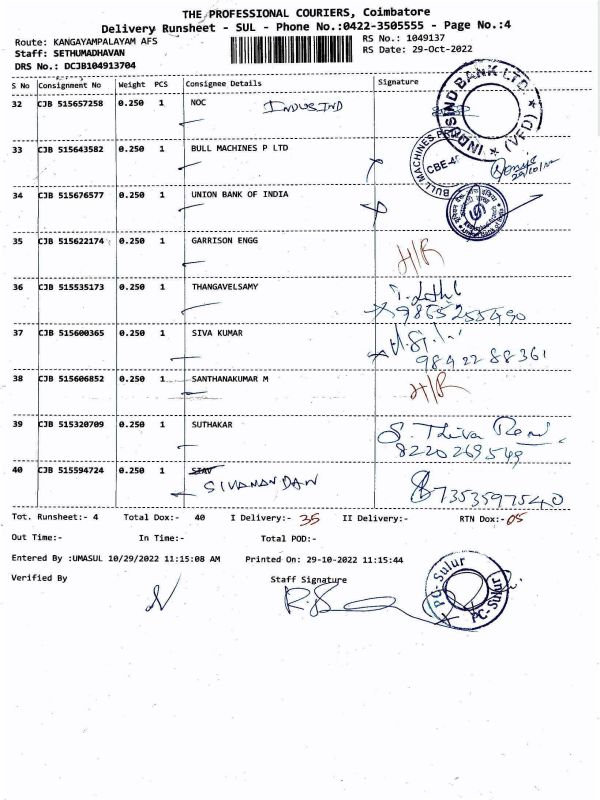 THE PROFESSIONAL COURIERS, Coimbatore
Delivery Runsheet - SUL - Phone No.:0422-3505555 - Page No.:4
Route: KANGAYAMPALAYAM AFS RS No.: 1049137
Staff: SETHUMADHAVAN RS Date: 29-Oct-2022
DRS No.: DCJB104913704
S No Consignment No Weight PCS Consignee Details Signature
32 CJB 515657258 0.250 1 NOC INDUSIND
INDUSIND BANK LTD. (VFD)
33 CJB 515643582 0.250 1 BULL MACHINES P LTD
BULL MACHINES CBE
34 CJB 515676577 0.250 1 UNION BANK OF INDIA
35 CJB 515622174 0.250 1 GARRISON ENGG H/R
36 CJB 515535173 0.250 1 THANGAVELSAMY
9865255490
37 CJB 515600365 0.250 1 SIVA KUMAR
9842288361
38 CJB 515606852 0.250 1 SANTHANAKUMAR M H/R
39 CJB 515320709 0.250 1 SUTHAKAR
8220269549
40 CJB 515594724 0.250 1 SIVANANDAN 7353597540
Tot. Runsheet:- 4 Total Dox:- 40 I Delivery:- 35 II Delivery:- RTN Dox:- 05
Out Time:- In Time:- Total POD:-
Entered By :UMASUL 10/29/2022 11:15:08 AM Printed On: 29-10-2022 11:15:44
Verified By Staff Signature
PC-Sulur
PC-Sulur